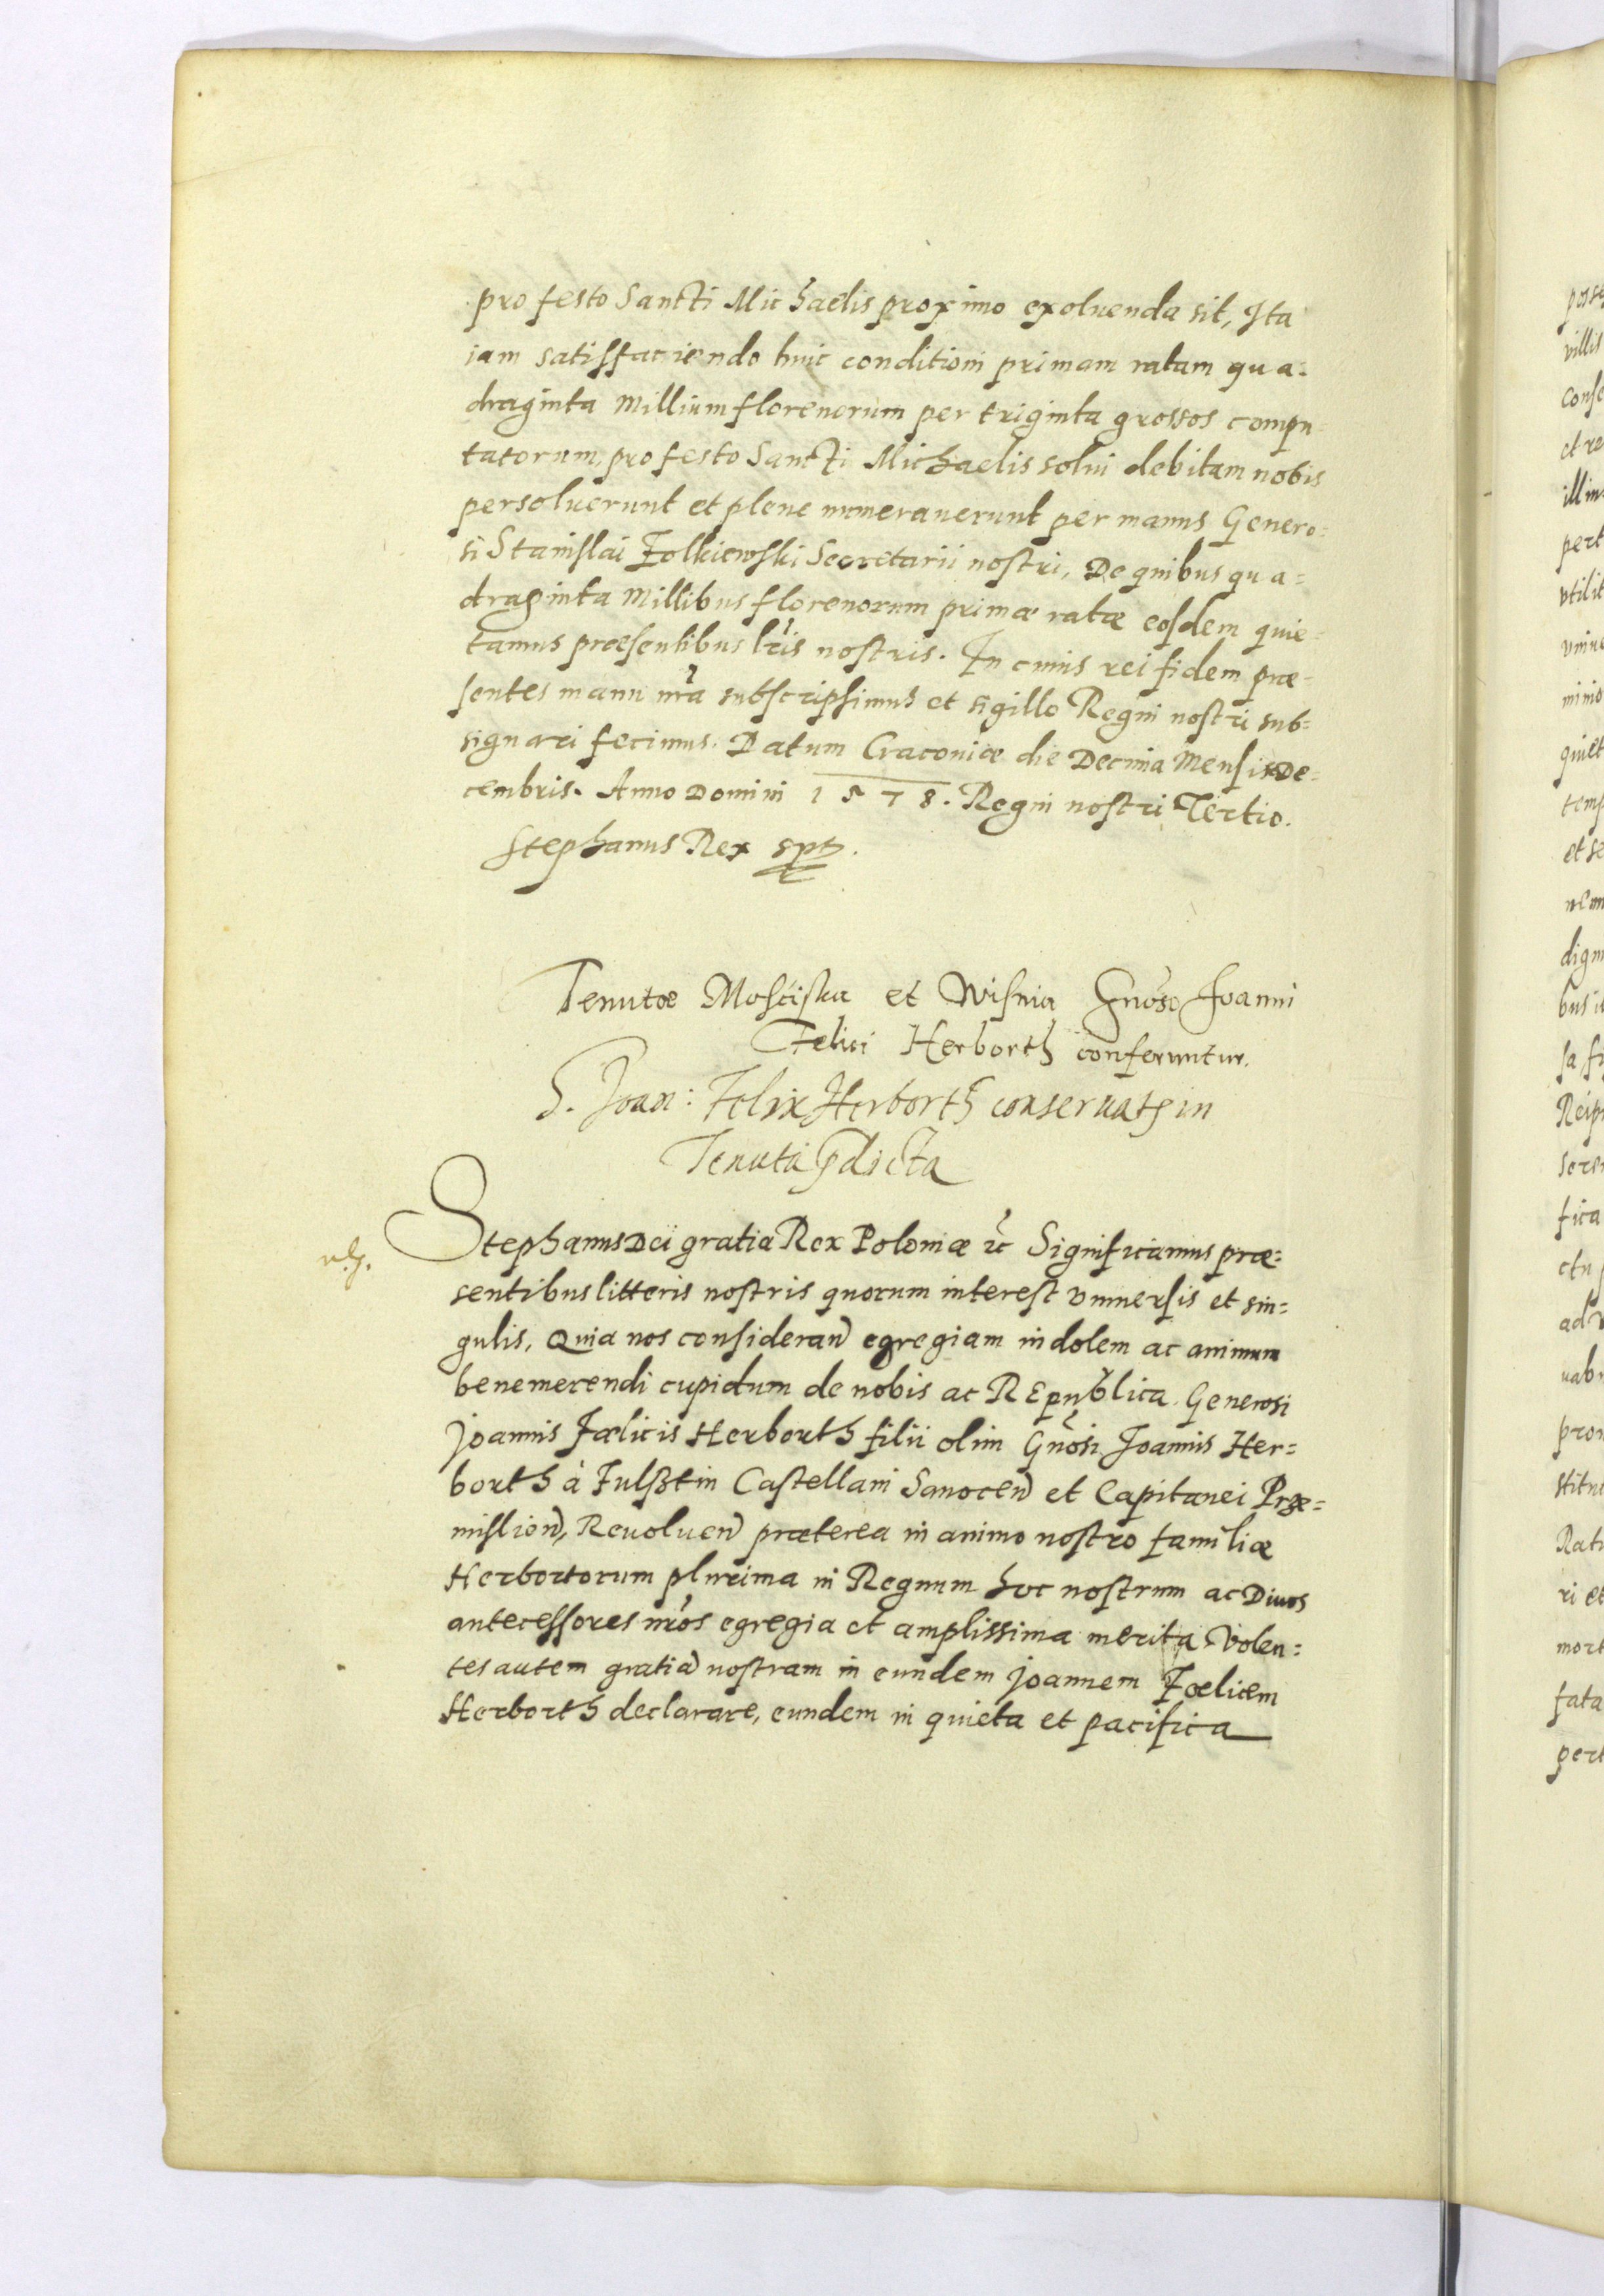 pro festo Sancti Michaelis proximo exoluenda sit, Ita
iam satisffaciendo huic conditioni primam ratam qua=
draginta Millium florenorum per triginta grossos compu=
tatorum, pro festo Sancti Michaelis solui debitam nobis
persoluerunt et plene numerauerunt per manus Genero=
si Stanislai Zolkiewski Secretarii nostri, De quibus qua=
draginta Millibus florenorum primæ ratæ eosdem quie=
tamus præsentibus lr̃is nostris. In cuius rei fidem præ=
sentes manu nr̃a subscripsimus et sigillo Regni nostri sub=
signari fecimus. Datum Cracouiæ die Decima Mensis De=
cembris. Anno Domini 1578. Regni nostri Tertio.
Stephanus Rex spt.
Tenutæ Mosciska et Wisnia Gnõso Joanni
Felici Herborth conferuntur.
S. Joan: Felix Herborth conseruatꝫ in
Tenuta p̱dicta
Stephanus Dei gratia Rex Poloniæ ꝛc̃ Significamus præ=
sentibus litteris nostris quorum interest vniuersis et sin=
gulis, Quia nos consideran̄ egregiam indolem ac animum
benemerendi cupidum de nobis ac REpublica Generosi
Joannis Fælicis Herborth filii olim Gnõsi Joannis Her=
borth à Fulsztin Castellani Sanocen̄ et Capitanei Præ=
mislien̄, Reuoluen̄ præterea in animo nostro familiæ
Herbortorum plurima in Regnum hoc nostrum ac Diuos
antecessores nr̃os egregia et amplissima merita Volen=
tes autem gratiã nostram in eundem Joannem Fœlicem
Herborth declarare, eundem in quieta et pacifica